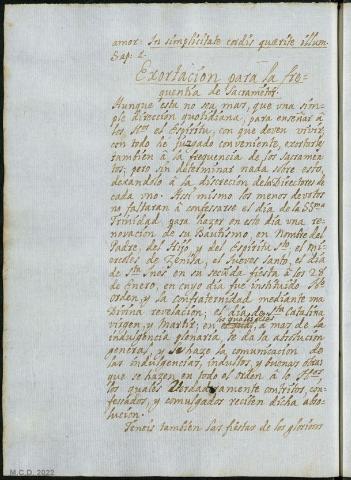 amor: In simplicitate cordis quærite illum.
Sap: 1.
Exortacion para la fre-
quentia de Sacramẽtos.
Aunque esta no sea mas, que una sim-
ple direccion quotidiana, para enseñar à
los el Espiritu, con que deven vivir,
con todo he juzgado conveniente, exortarlos
tambien à la frequencia de los Sacramen-
tos; pero sin determinar nada sobre esto,
dexandolo à la discrecion de los Directores de
cada uno. Assi mismo los menos devotos
no faltaran à confessarse el dia de la SSma
Trinidad, para hazer en este dia una re-
novacion de su Bautismo, en Nombre del
Padre, del Hijo, y del Espiritu Sto, el mi-
ercoles de Zeniza, el Jueves Santo, el dia
de Sta Ines en su segunda fiesta à los 28
de Enero, en cuyo dia fue instituìdo
Orden, y la confraternidad mediante una
Divina revelacion; el dia de Sta Catalina
virgen, y Martir; en los quales, a mas de la
indulgencia plenaria, se da la absolucion
general, y se haze la comunicacion de
las indulgencias, indultos, y buenas obras
que se hazen en todo el Orden à los
los quales verdaderamente contritos, con-
fessados, y comulgados reciben dicha abso-
lucion.
Teneis tambien las fiestas de los gloriosos
M.C.D. 2022